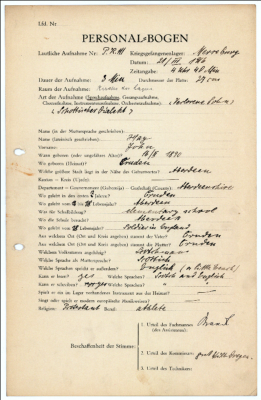 Lfd. Nr.
PERSONAL-BOGEN
Lautliche Aufnahme Nr.: Kriegsgefangenenlager: Merseburg
Datum:
Zeitangabe: 4 Uhr 40 Min
Dauer der Aufnahme: 3 Min Durchmesser der Platte: 27 cm
Raum der Aufnahme:
Art der Aufnahme (Sprachaufnahme, Gesangsaufnahme,
Choraufnahme, Instrumentenaufnahme, Orchesteraufnahme):
(Schottischer Dialekt)
Name (in der Muttersprache geschrieben):
Name (lateinisch geschrieben):
Vorname: John
Wann geboren (oder ungefähres Alter)? 1890
Wo geboren (Heimat)? Cruden
Welche größere Stadt liegt in der Nähe des Geburtsortes? Aberdeen
Kanton – Kreis (Ujedz):
Departement – Gouvernement (Gubernija) – Grafschaft (County): Aberdeenshire
Wo gelebt in den ersten 6 Jahren? Cruden
Wo gelebt vom Lebensjahr? Aberdeen
Was für Schulbildung? elementary school
Wo die Schule besucht? Aberdeen
Wo gelebt vom Lebensjahr? Soldier in England
Aus welchem Ort (Ort und Kreis angeben) stammt der Vater? Cruden
Aus welchem Ort (Ort und Kreis angeben) stammt die Mutter? Cruden
Welchem Volksstamm angehörig? Scotchman
Welche Sprache als Muttersprache? Scottish
Welche Sprachen spricht er außerdem? English (a little French)
Kann er lesen? yes Welche Sprachen? Scotch and English
Kann er schreiben? yes Welche Sprachen?
Spielt er ein im Lager vorhandenes Instrument aus der Heimat? —
Singt oder spielt er modern europäische Musikweisen? —
Religion: Protestant Beruf: athlete
1. Urteil des Fachmannes
(des Assistenten):
Beschaffenheit der Stimme:
2. Urteil des Kommissars:
3. Urteil des Technikers: